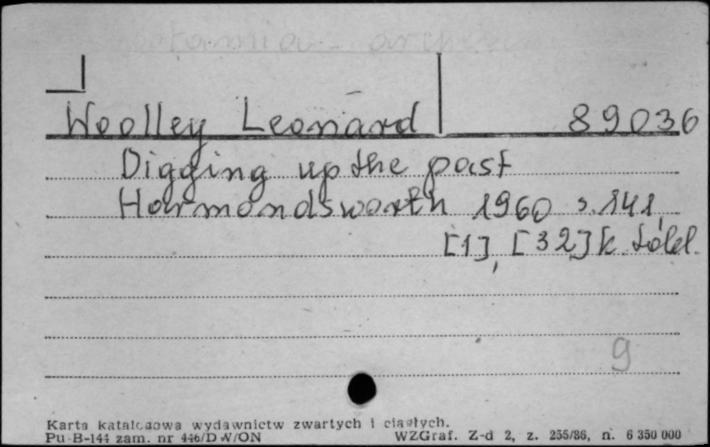 Woolley Leonard 89036
Digging up the past
Harmondsworth 1960 s. 141,
[1], [32] k. tabl.
9
Karta katalogowa wydawnictw zwartych i ciągłych.
Pu-B-144 zam. nr 446/DW/ON WZGraf. Z-d 2, z. 255/86, n. 6 350 000